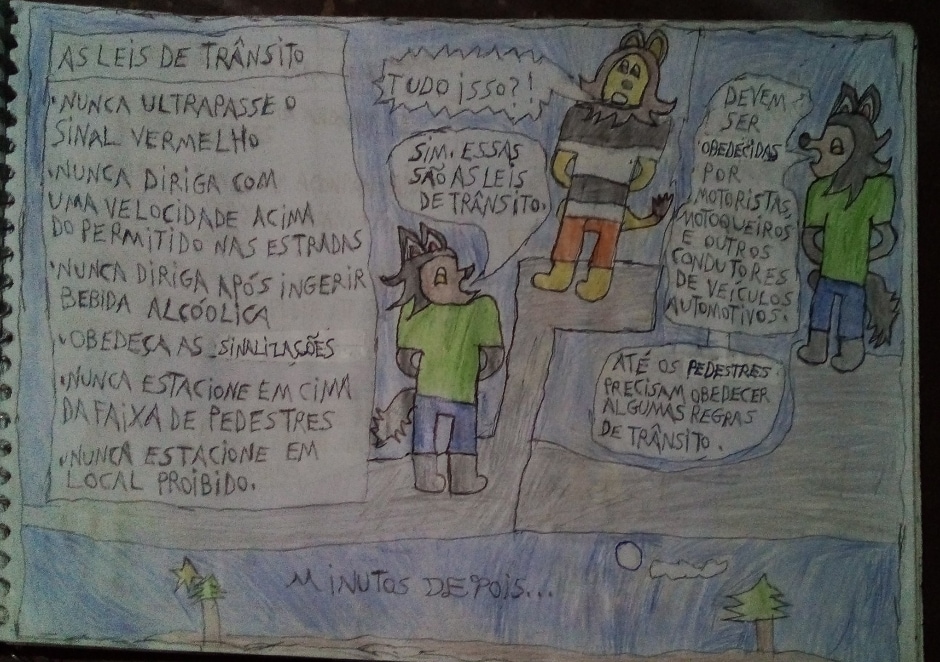 AS LEIS DE TRÂNSITO
•NUNCA ULTRAPASSE O
SINAL VERMELHO
•NUNCA DIRIGA COM
UMA VELOCIDADE ACIMA
DO PERMITIDO NAS ESTRADAS
•NUNCA DIRIGA APÓS INGERIR
BEBIDA ALCÓOLICA
•OBEDEÇA AS SINALIZAÇÕES
•NUNCA ESTACIONE EM CIMA
DA FAIXA DE PEDESTRES
•NUNCA ESTACIONE EM
LOCAL PROIBIDO.
TUDO ISSO?!
SIM. ESSAS
SÃO AS LEIS
DE TRÂNSITO.
DEVEM
SER
OBEDECIDAS
POR
MOTORISTAS,
MOTOQUEIROS
E OUTROS
CONDUTORES
DE VEÍCULOS
AUTOMOTIVOS.
ATÉ OS PEDESTRES
PRECISAM OBEDECER
ALGUMAS REGRAS
DE TRÂNSITO.
MINUTOS DEPOIS...